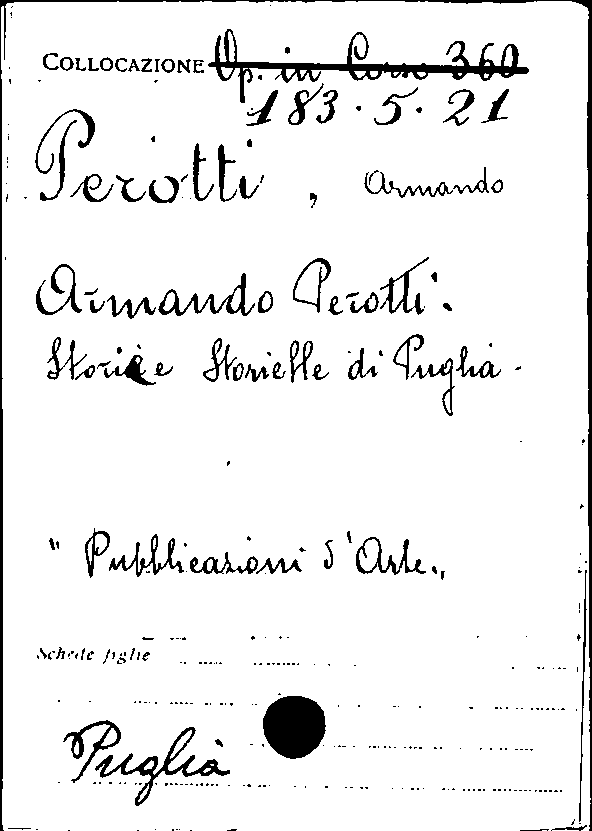 COLLOCAZIONE Op. in Corso 360
183.5.21
Perotti, Armando
Armando Perotti.
Storie e Storielle di Puglia.
"Pubblicazioni d'Arte.„
Schede figlie
Puglia